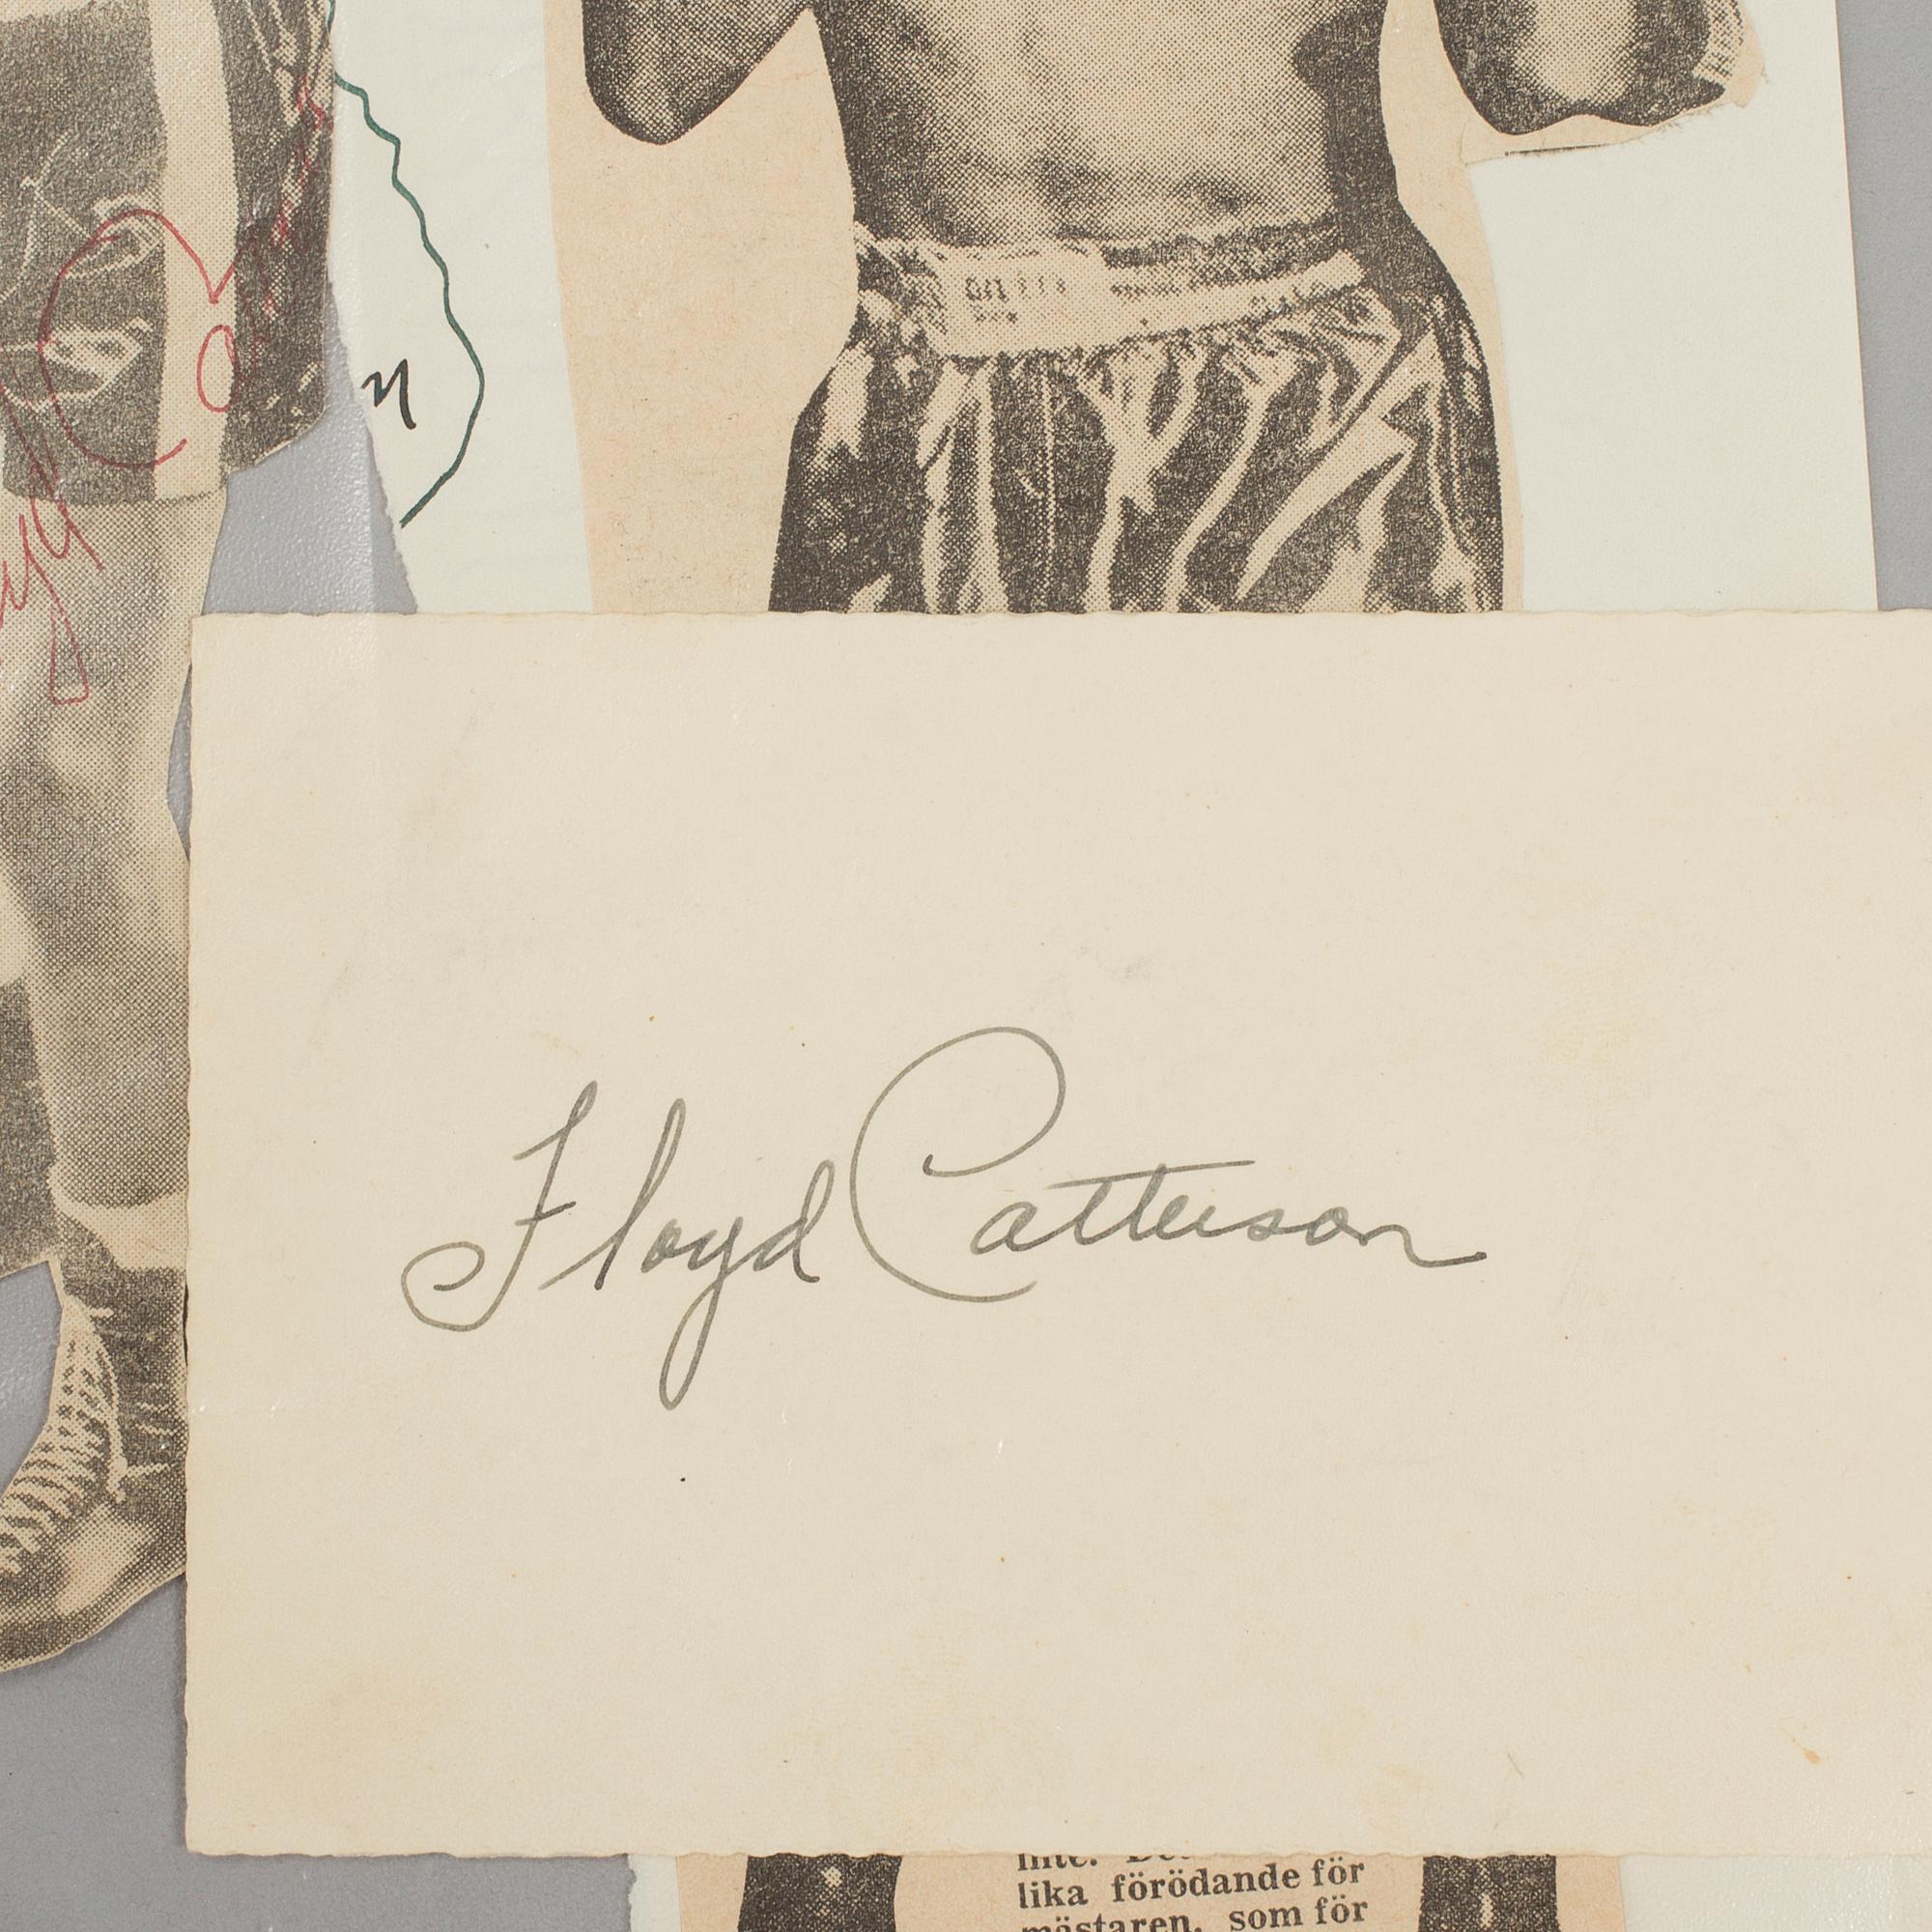 n
Floyd Patterson
lika förödande för
mästaren, som för